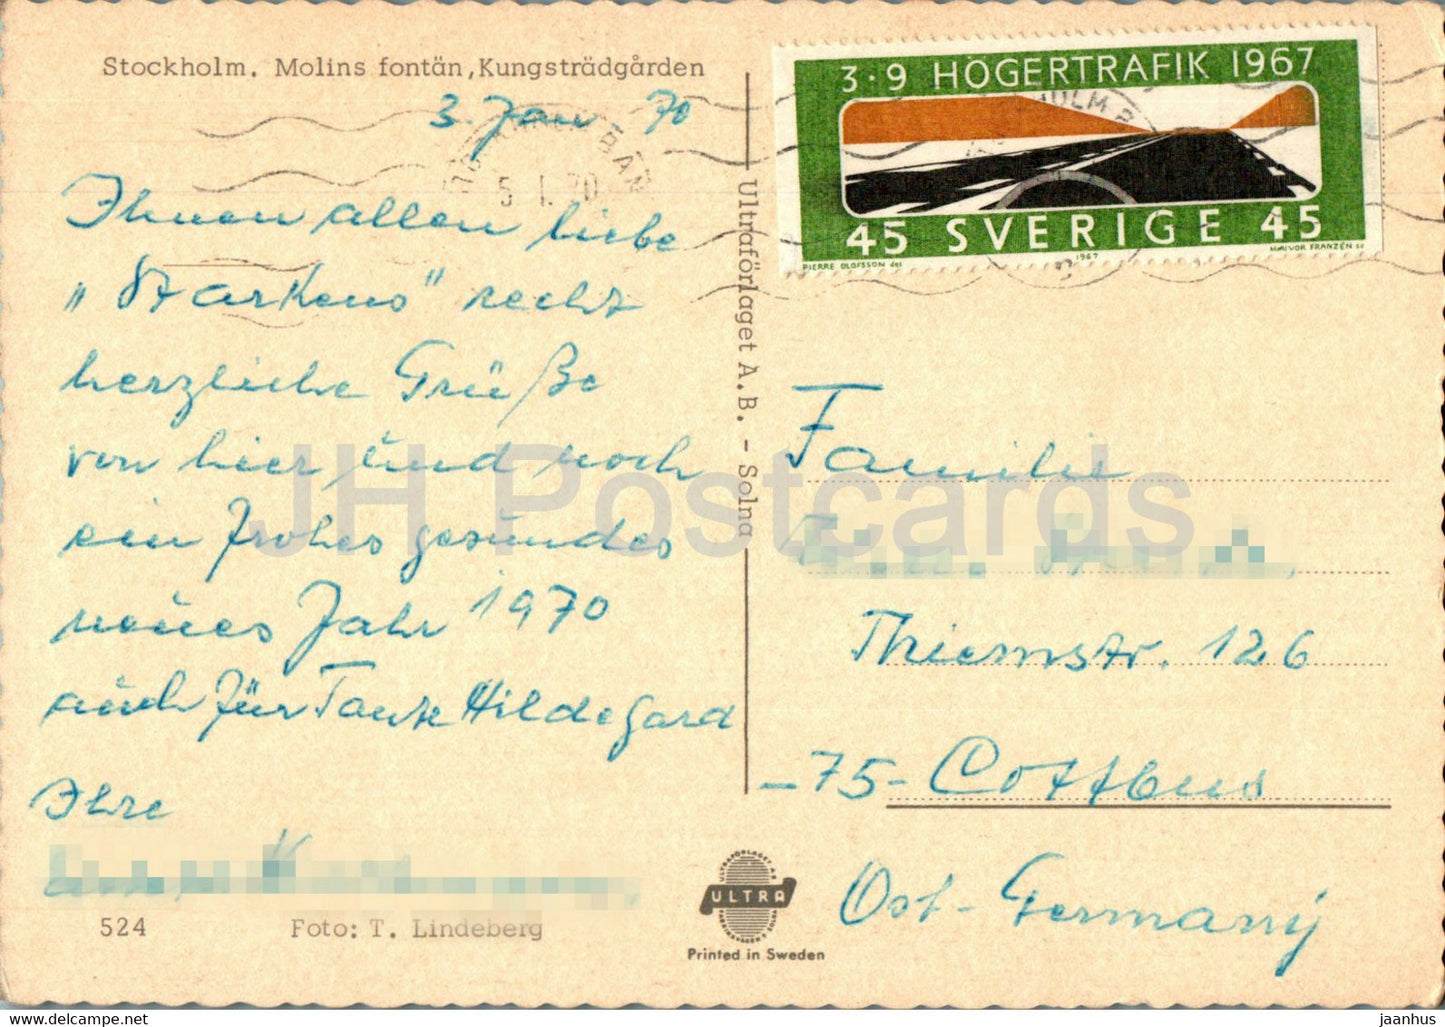 Stockholm. Molins fontän, Kungsträdgården
3. Jan 70
Ihnen allen liebe
„Starkens" recht
herzliche Grüße
von hier und noch
ein frohes gesundes
neues Jahr 1970
auch für Tante Hildegard
Ihre
524 Foto: T. Lindeberg
Ultraförlaget A.B. - Solna
ULTRA
Printed in Sweden
3·9 HÖGERTRAFIK 1967
45 SVERIGE 45
PIERRE OLOFSSON del 1967 MAJVOR FRANZÉN sc
5.1.70
Familie
Thiemstr. 126
-75- Cottbus
Ost-Germany
JH Postcards
www.delcampe.net
jaanhus